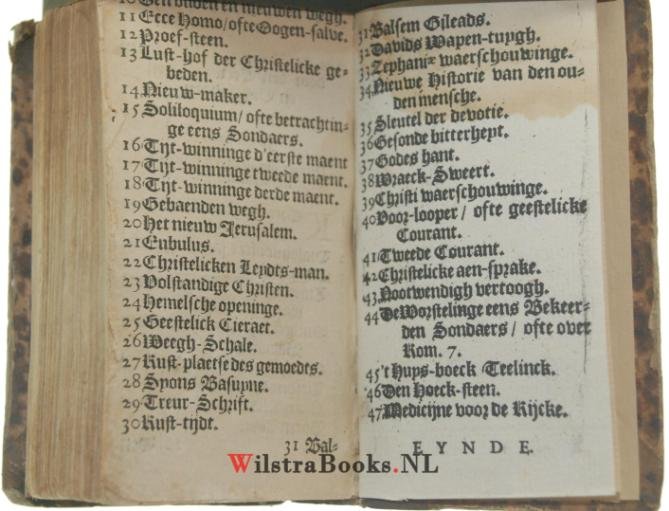 10 den ouden en nieuwen wegh.
11 Ecce Homo/ ofte Oogen-salve.
12 Proef-steen.
13 Lust-hof der Christelicke ge-
beden.
14 Nieuw-maker.
15 Soliloquium/ ofte betrachtin-
ge eens Sondaers.
16 Tijt-winninge d'eerste maent
17 Tijt-winninge tweede maent.
18 Tijt-winninge derde maent.
19 Gebaenden wegh.
20 Het nieuw Jerusalem.
21 Eubulus.
22 Christelicken Leydts-man.
23 Volstandige Christen.
24 Hemelsche openinge.
25 Geestelick Cieraet.
26 Weegh-Schale.
27 Rust-plaetse des gemoedes.
28 Syons Basuyne.
29 Treur-Schrift.
30 Rust-tijdt.
31 Bal-
31 Balsem Gileads.
32 Davids Wapen-tuygh.
33 Zephaniæ waerschouwinge.
34 Nieuwe Historie van den ou-
den mensche.
35 Sleutel der devotie.
36 Gesonde bitterheyt.
37 Godes hant.
38 Wraeck-Sweert.
39 Christi waerschouwinge.
40 Voor-looper/ ofte geestelicke
Courant.
41 Tweede Courant.
42 Christelicke aen-sprake.
43 Nootwendigh vertoogh.
44 De Worstelinge eens Bekeer-
den Sondaers/ ofte over
Rom. 7.
45 't Huys-boeck Teelinck.
46 Den Hoeck-steen.
47 Medicijne voor de Rijcke.
EYNDE.
WilstraBooks.NL